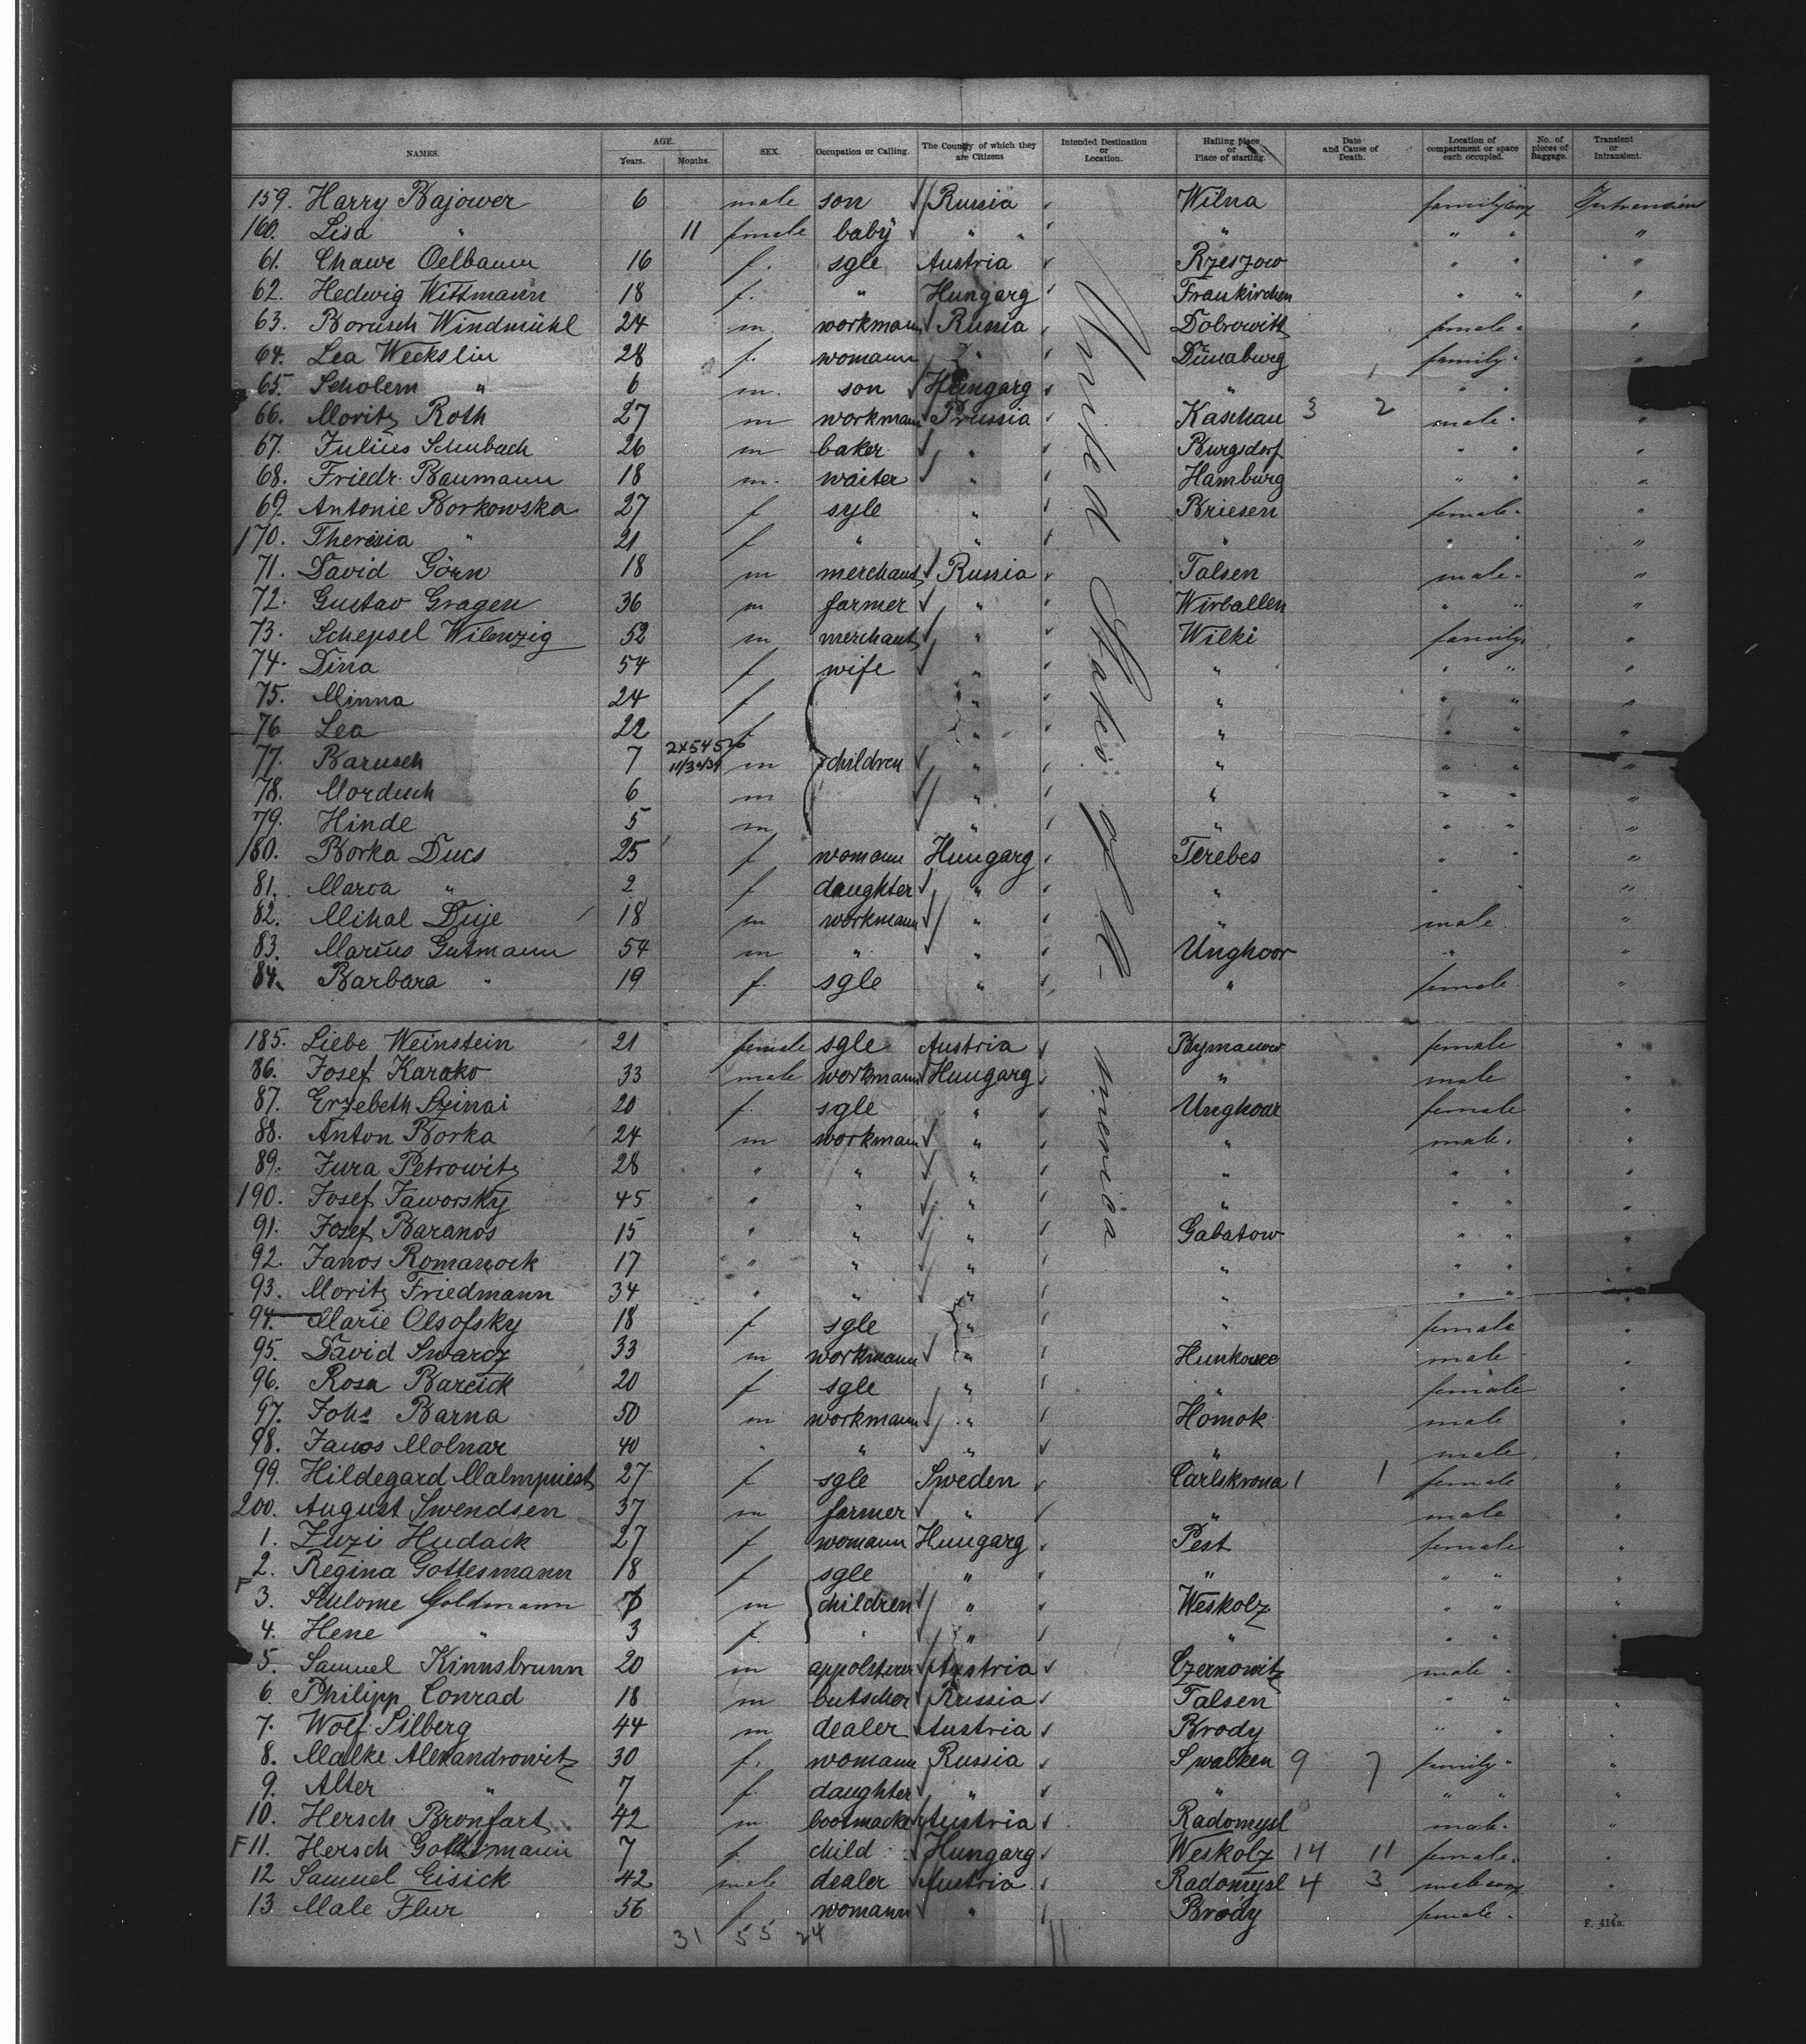 NAMES. AGE. Years. Months. SEX. Occupation or Calling. The County of which they are Citizens Intended Destination or Location. Hailing place or Place of starting. Date and Cause of Death. Location of compartment or space each occupied. No. of pieces of Baggage. Transient or Intransient.
159. Harry Bajower 6 male son Russia Wilna family
160. Lisa " 11 female baby " " "
61. Chawe Oelbaum 16 f. sgle Austria Rzeszow " "
62. Hedwig Wittmann 18 f. " Hungarg Fraukirchen " "
63. Borusch Windmühl 24 m. workmann Russia female "
64. Lea Weckslin 28 f. womann " Dünaburg family "
65. Scholem " 6 m. son Hungarg " " "
66. Moritz Roth 27 m workmann Prussia Kaschau 3 2 male "
67. Julius 26 m baker " Burgsdorf " "
68. Friedr. Baumann 18 m. waiter " Hamburg " "
69. Antonie Borkowska 27 f sgle " Briesen female "
170. Theresia " 21 f " " " " "
71. David Görn 18 m merchant Russia Talsen male "
72. Gustav Gragen 36 m farmer " Wirballen " "
73. Schepsel Wilenzig 52 m merchant " Wilki family "
74. Dina 54 f wife " " " "
75. Minna 24 f " " " "
76. Lea 22 f " " " "
77. Barusch 7 m children " " " "
78. Morduch 6 m " " " "
79. Hinde 5 m " " " "
180. Borka Ducs 25 f womann Hungarg Terebes " "
81. Maroa " 2 f daughter " " " "
82. Mihal Duje 18 m workmann " " male "
83. Marcus Gutmann 54 m " " Unghoor " "
84. Barbara " 19 f. sgle " " female "
United States of N-
185. Liebe Weinstein 21 female sgle Austria Rymanow female "
86. Josef Karako 33 male workmann Hungarg " male "
87. Erzebeth Szinai 20 f. sgle " Unghoar female "
88. Anton Borka 24 m workmann " " male "
89. Jura Petrowitz 28 " " " " " "
190. Josef Jaworsky 45 " " " " " "
91. Josef Baranos 15 " " " Gabatow " "
92. Janos 17 " " " " " "
93. Moritz Friedmann 34 " " " " " "
94. Marie Olsofsky 18 f sgle " " female "
95. David Swarcz 33 m workmann " male "
96. Rosa Barcick 20 f sgle " " female "
97. Johs Barna 50 m workmann " Homok male "
98. Janos Molnar 40 " " " " male "
99. Hildegard Malmquiest 27 f sgle Sweden Carlskrona 1 1 female "
200. August Swendsen 37 m farmer " " male "
1. Zuzi Hudack 27 f womann Hungarg Pest female "
2. Regina Gottesmann 18 f sgle " " " "
F 3. Schlome Goldmann 7 m children " Weskolz " "
4. Hene " 3 f. " " " " "
5. Samuel Kinnsbrunn 20 m appolsterer Austria Czernowitz male "
6. Philipp Conrad 18 m butscher Russia Talsen " "
7. Wolf Silberg 44 m dealer Austria Brody " "
8. Malke Alexandrowitz 30 f. womann Russia Swalken 9 7 family "
9. Alter " 7 f. daughter " " " "
10. Hersch Bronfart 42 m bootmacker Austria Radomysl male "
F 11. Hersch 7 f. child Hungarg Weskolz 14 11 female "
12 Samuel Eisick 42 male dealer Austria Radomysl 4 3 male
13. Male Flur 56 f womann " Brody female "
31 55 24
F. 414a.